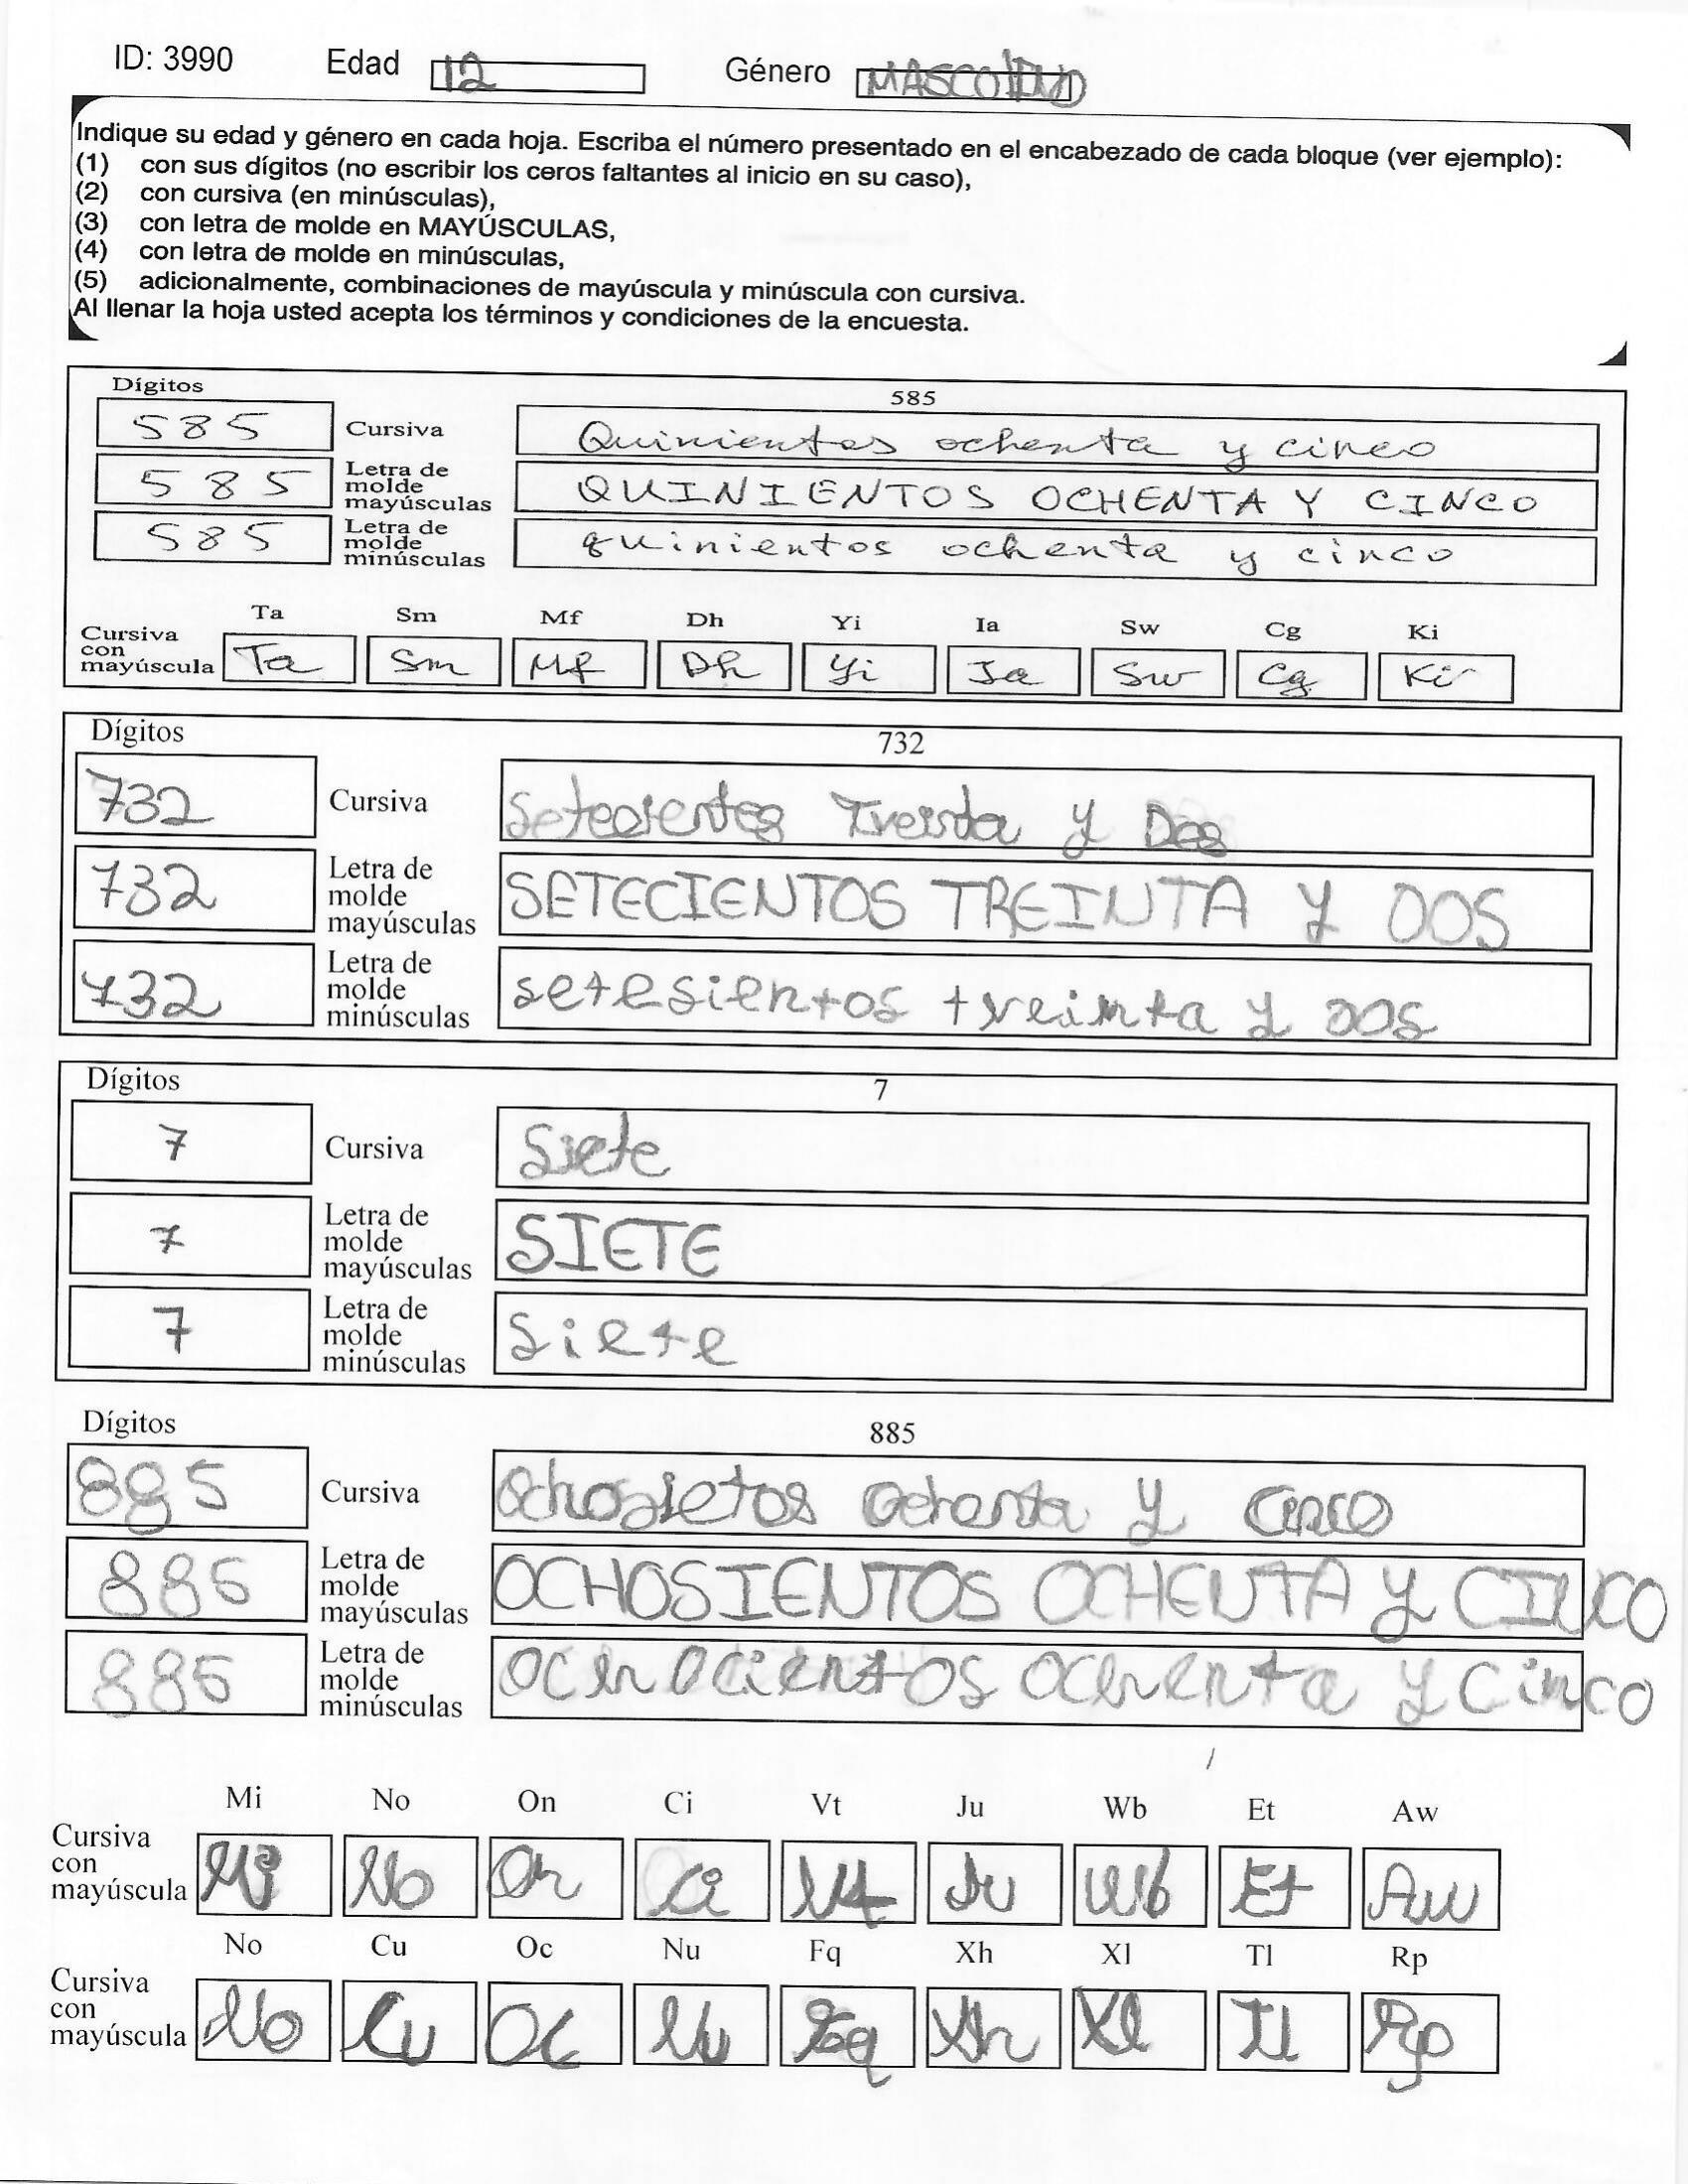 ID: 3990 Edad 12 Género MASCOLINO
Indique su edad y género en cada hoja. Escriba el número presentado en el encabezado de cada bloque (ver ejemplo):
(1) con sus dígitos (no escribir los ceros faltantes al inicio en su caso),
(2) con cursiva (en minúsculas),
(3) con letra de molde en MAYÚSCULAS,
(4) con letra de molde en minúsculas,
(5) adicionalmente, combinaciones de mayúscula y minúscula con cursiva.
Al llenar la hoja usted acepta los términos y condiciones de la encuesta.
Dígitos 585
585 Cursiva Quinientos ochenta y cinco
585 Letra de molde mayúsculas QUINIENTOS OCHENTA Y CINCO
585 Letra de molde minúsculas quinientos ochenta y cinco
Ta Sm Mf Dh Yi Ia Sw Cg Ki
Cursiva con mayúscula Ta Sm Mf Dh Yi Ia Sw Cg Ki
Dígitos 732
732 Cursiva Setecientos Treinta y Dos
732 Letra de molde mayúsculas SETECIENTOS TREINTA Y DOS
732 Letra de molde minúsculas setesientos treinta y dos
Dígitos 7
7 Cursiva Siete
7 Letra de molde mayúsculas SIETE
7 Letra de molde minúsculas siete
Dígitos 885
885 Cursiva Ochosietos Ochenta y Cinco
885 Letra de molde mayúsculas OCHOSIENTOS OCHENTA Y CINCO
885 Letra de molde minúsculas ochocientos ochenta y cinco
Mi No On Ci Vt Ju Wb Et Aw
Cursiva con mayúscula Mi No On Ci Vt Ju Wb Et Aw
No Cu Oc Nu Fq Xh Xl Tl Rp
Cursiva con mayúscula No Cu Oc Nu Fq Xh Xl Tl Rp